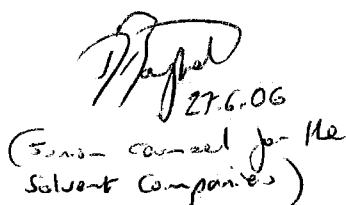 27.6.06
(Junior counsel for the
Solvent Companies)